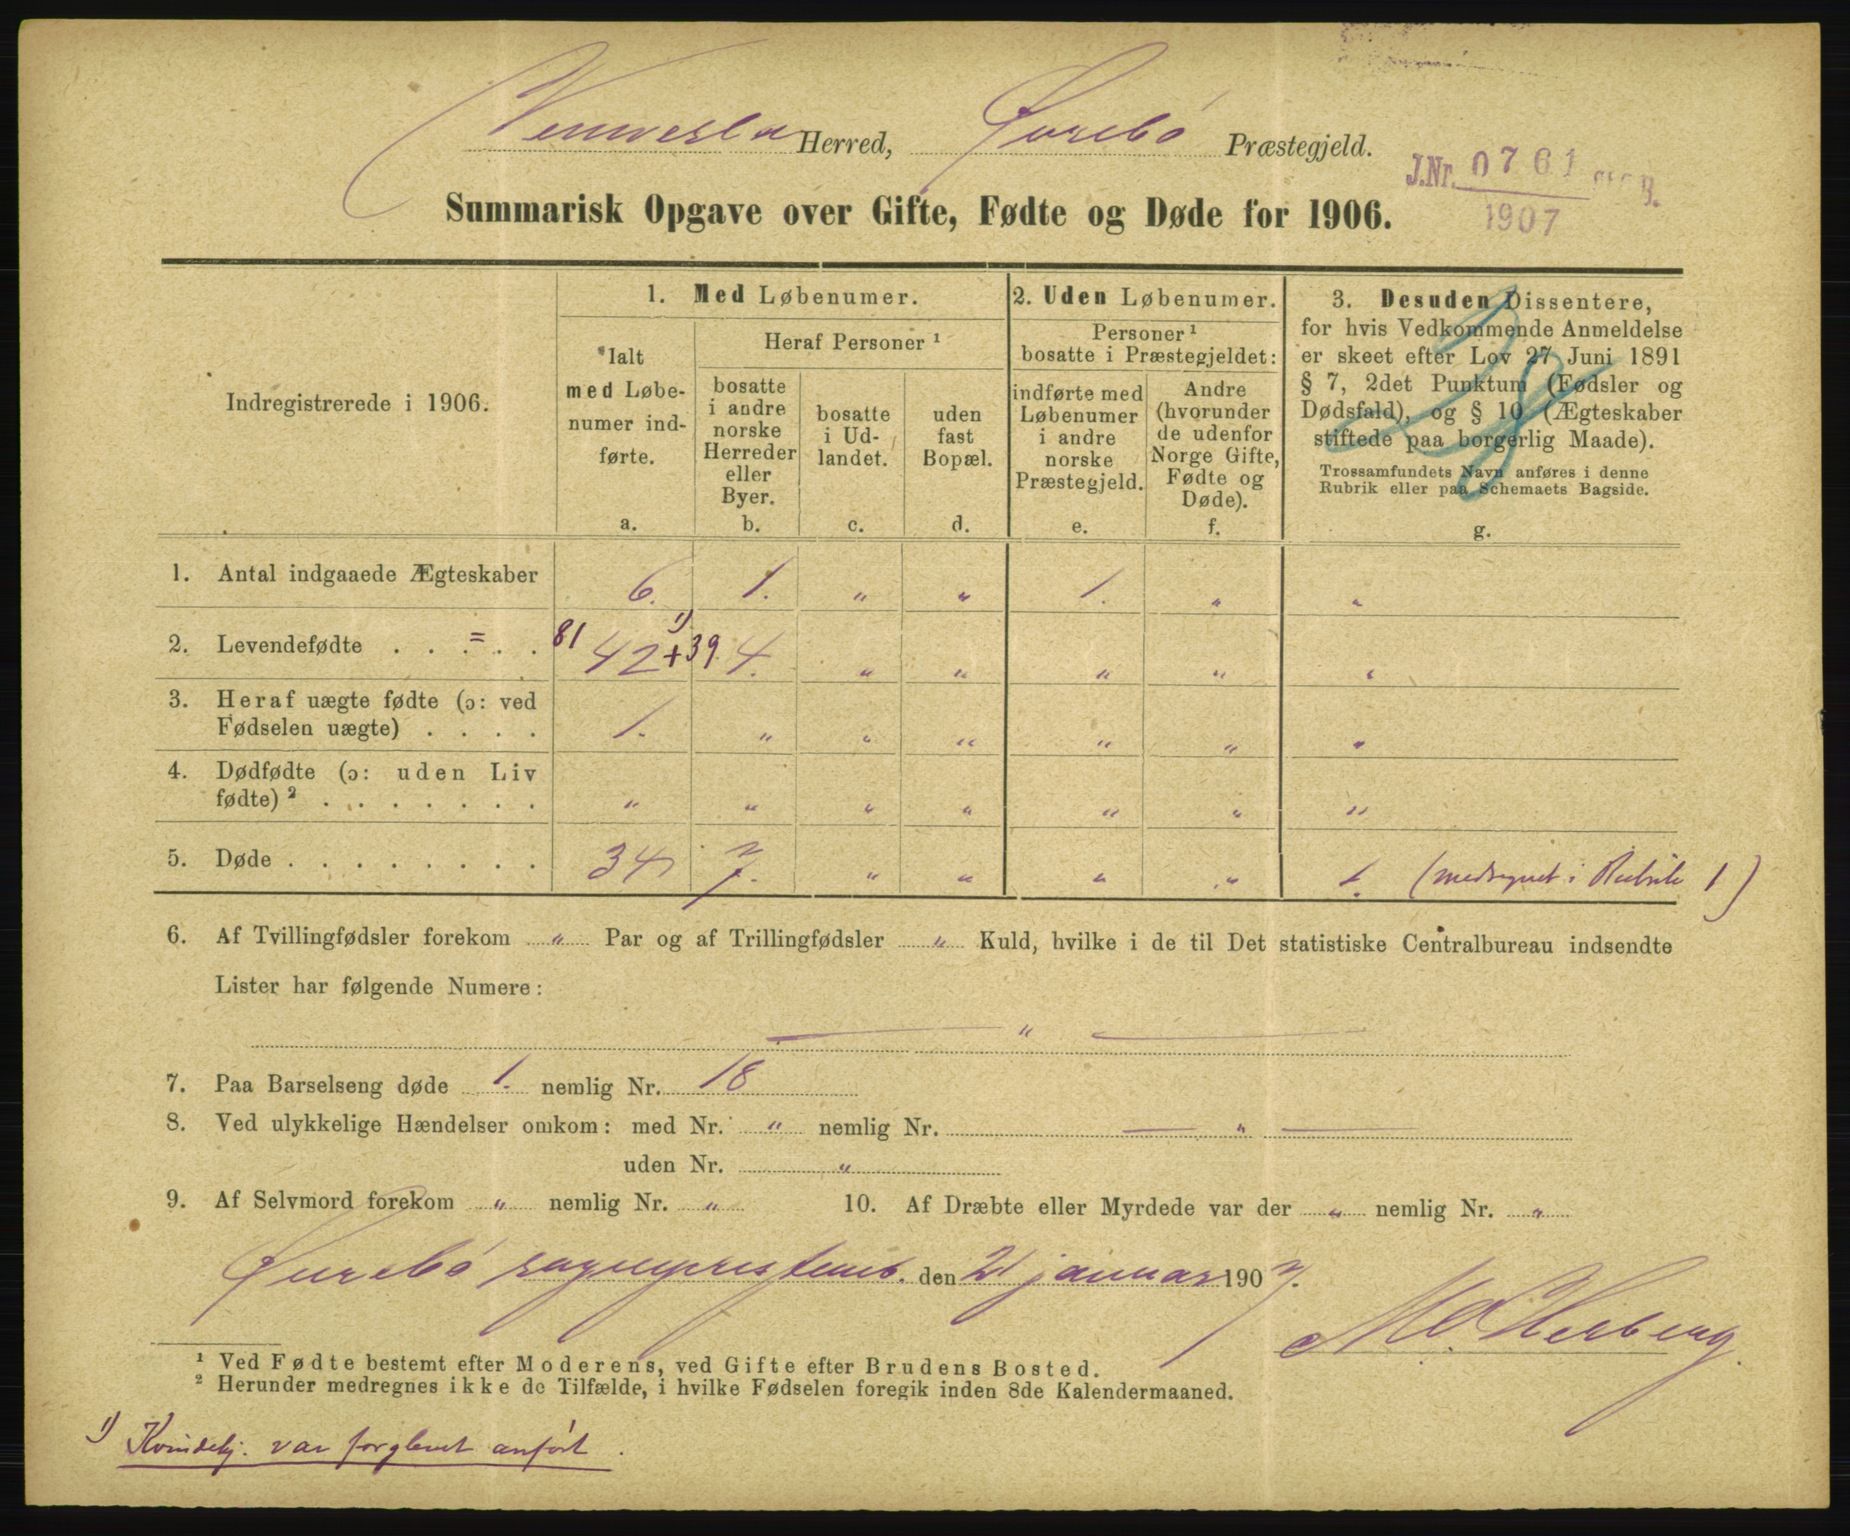 Vennesla Herred, Øvrebø Præstegjeld.
J.Nr. 0761 B.
1907
Summarisk Opgave over Gifte, Fødte og Døde for 1906.
Indregistrerede i 1906.
1. Med Løbenumer.
Ialt med Løbenumer indførte.
a.
Heraf Personer ¹
bosatte i andre norske Herreder eller Byer.
b.
bosatte i Udlandet.
c.
uden fast Bopæl.
d.
2. Uden Løbenumer.
Personer ¹ bosatte i Præstegjeldet:
indførte med Løbenumer i andre norske Præstegjeld.
e.
Andre (hvorunder de udenfor Norge Gifte, Fødte og Døde).
f.
3. Desuden Dissentere,
for hvis Vedkommende Anmeldelse
er skeet efter Lov 27 Juni 1891
§ 7, 2det Punktum (Fødsler og
Dødsfald), og § 10 (Ægteskaber
stiftede paa borgerlig Maade).
Trossamfundets Navn anføres i denne
Rubrik eller paa Schemaets Bagside.
g.
1. Antal indgaaede Ægteskaber 6. 1. " " 1. " "
2. Levendefødte . . = . . 81 42 ¹) + 39 4. " " " " "
3. Heraf uægte fødte (ɔ: ved
Fødselen uægte) . . . . 1. " " " " " "
4. Dødfødte (ɔ: uden Liv
fødte) ² . . . . . . . " " " " " " "
5. Døde . . . . . . . . 34 7. " " " " 1. (medregnet i Rubrik 1)
6. Af Tvillingfødsler forekom " Par og af Trillingfødsler " Kuld, hvilke i de til Det statistiske Centralbureau indsendte
Lister har følgende Numere:
— " —
7. Paa Barselseng døde 1. nemlig Nr. 18
8. Ved ulykkelige Hændelser omkom: med Nr. " nemlig Nr. — " —
uden Nr. "
9. Af Selvmord forekom " nemlig Nr. " 10. Af Dræbte eller Myrdede var der " nemlig Nr. "
Øvrebø sogneprestemb. den 21 januar 1907.
Herberg.
¹ Ved Fødte bestemt efter Moderens, ved Gifte efter Brudens Bosted.
² Herunder medregnes ikke de Tilfælde, i hvilke Fødselen foregik inden 8de Kalendermaaned.
¹) Kvindekj. var forglemt anført.